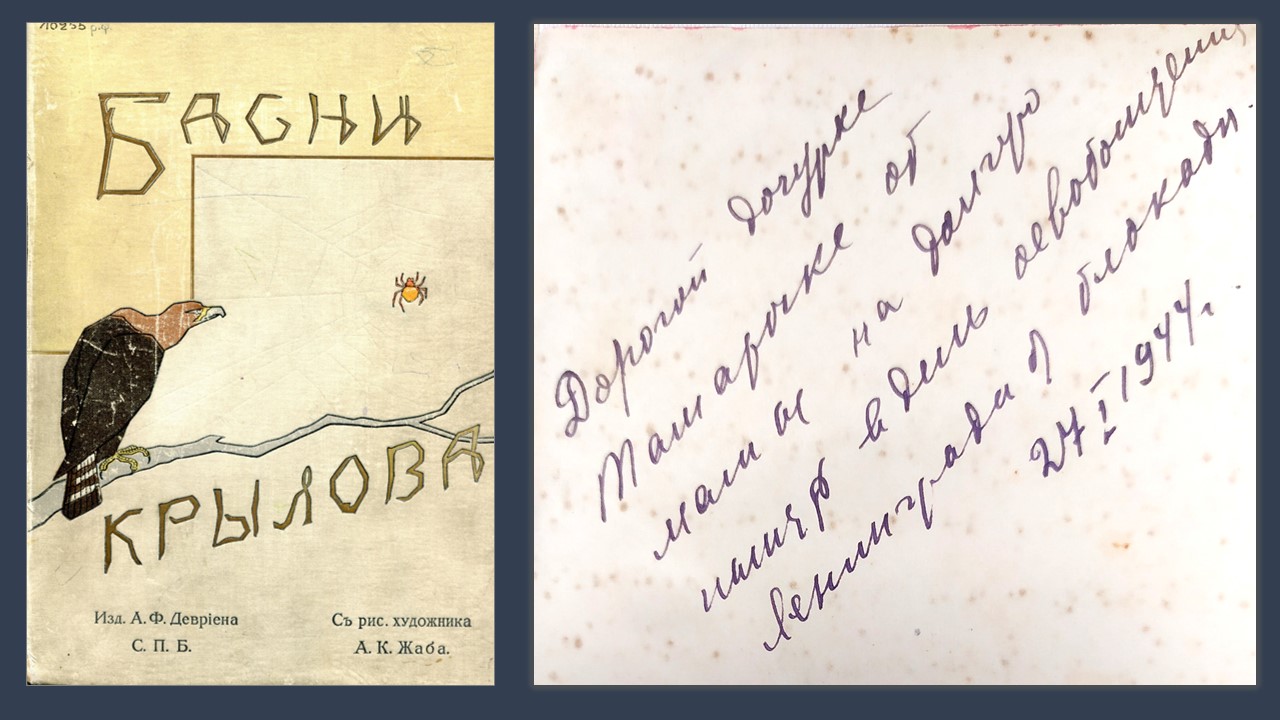 БАСНИ
КРЫЛОВА
Изд. А. Ф. Девріена
С. П. Б.
Съ рис. художника
А. К. Жаба.
Дорогой дочурке
Тамарочке от
мамы на долгую
память в день освобождения
Ленинграда от блокады.
27 I 1944 г.